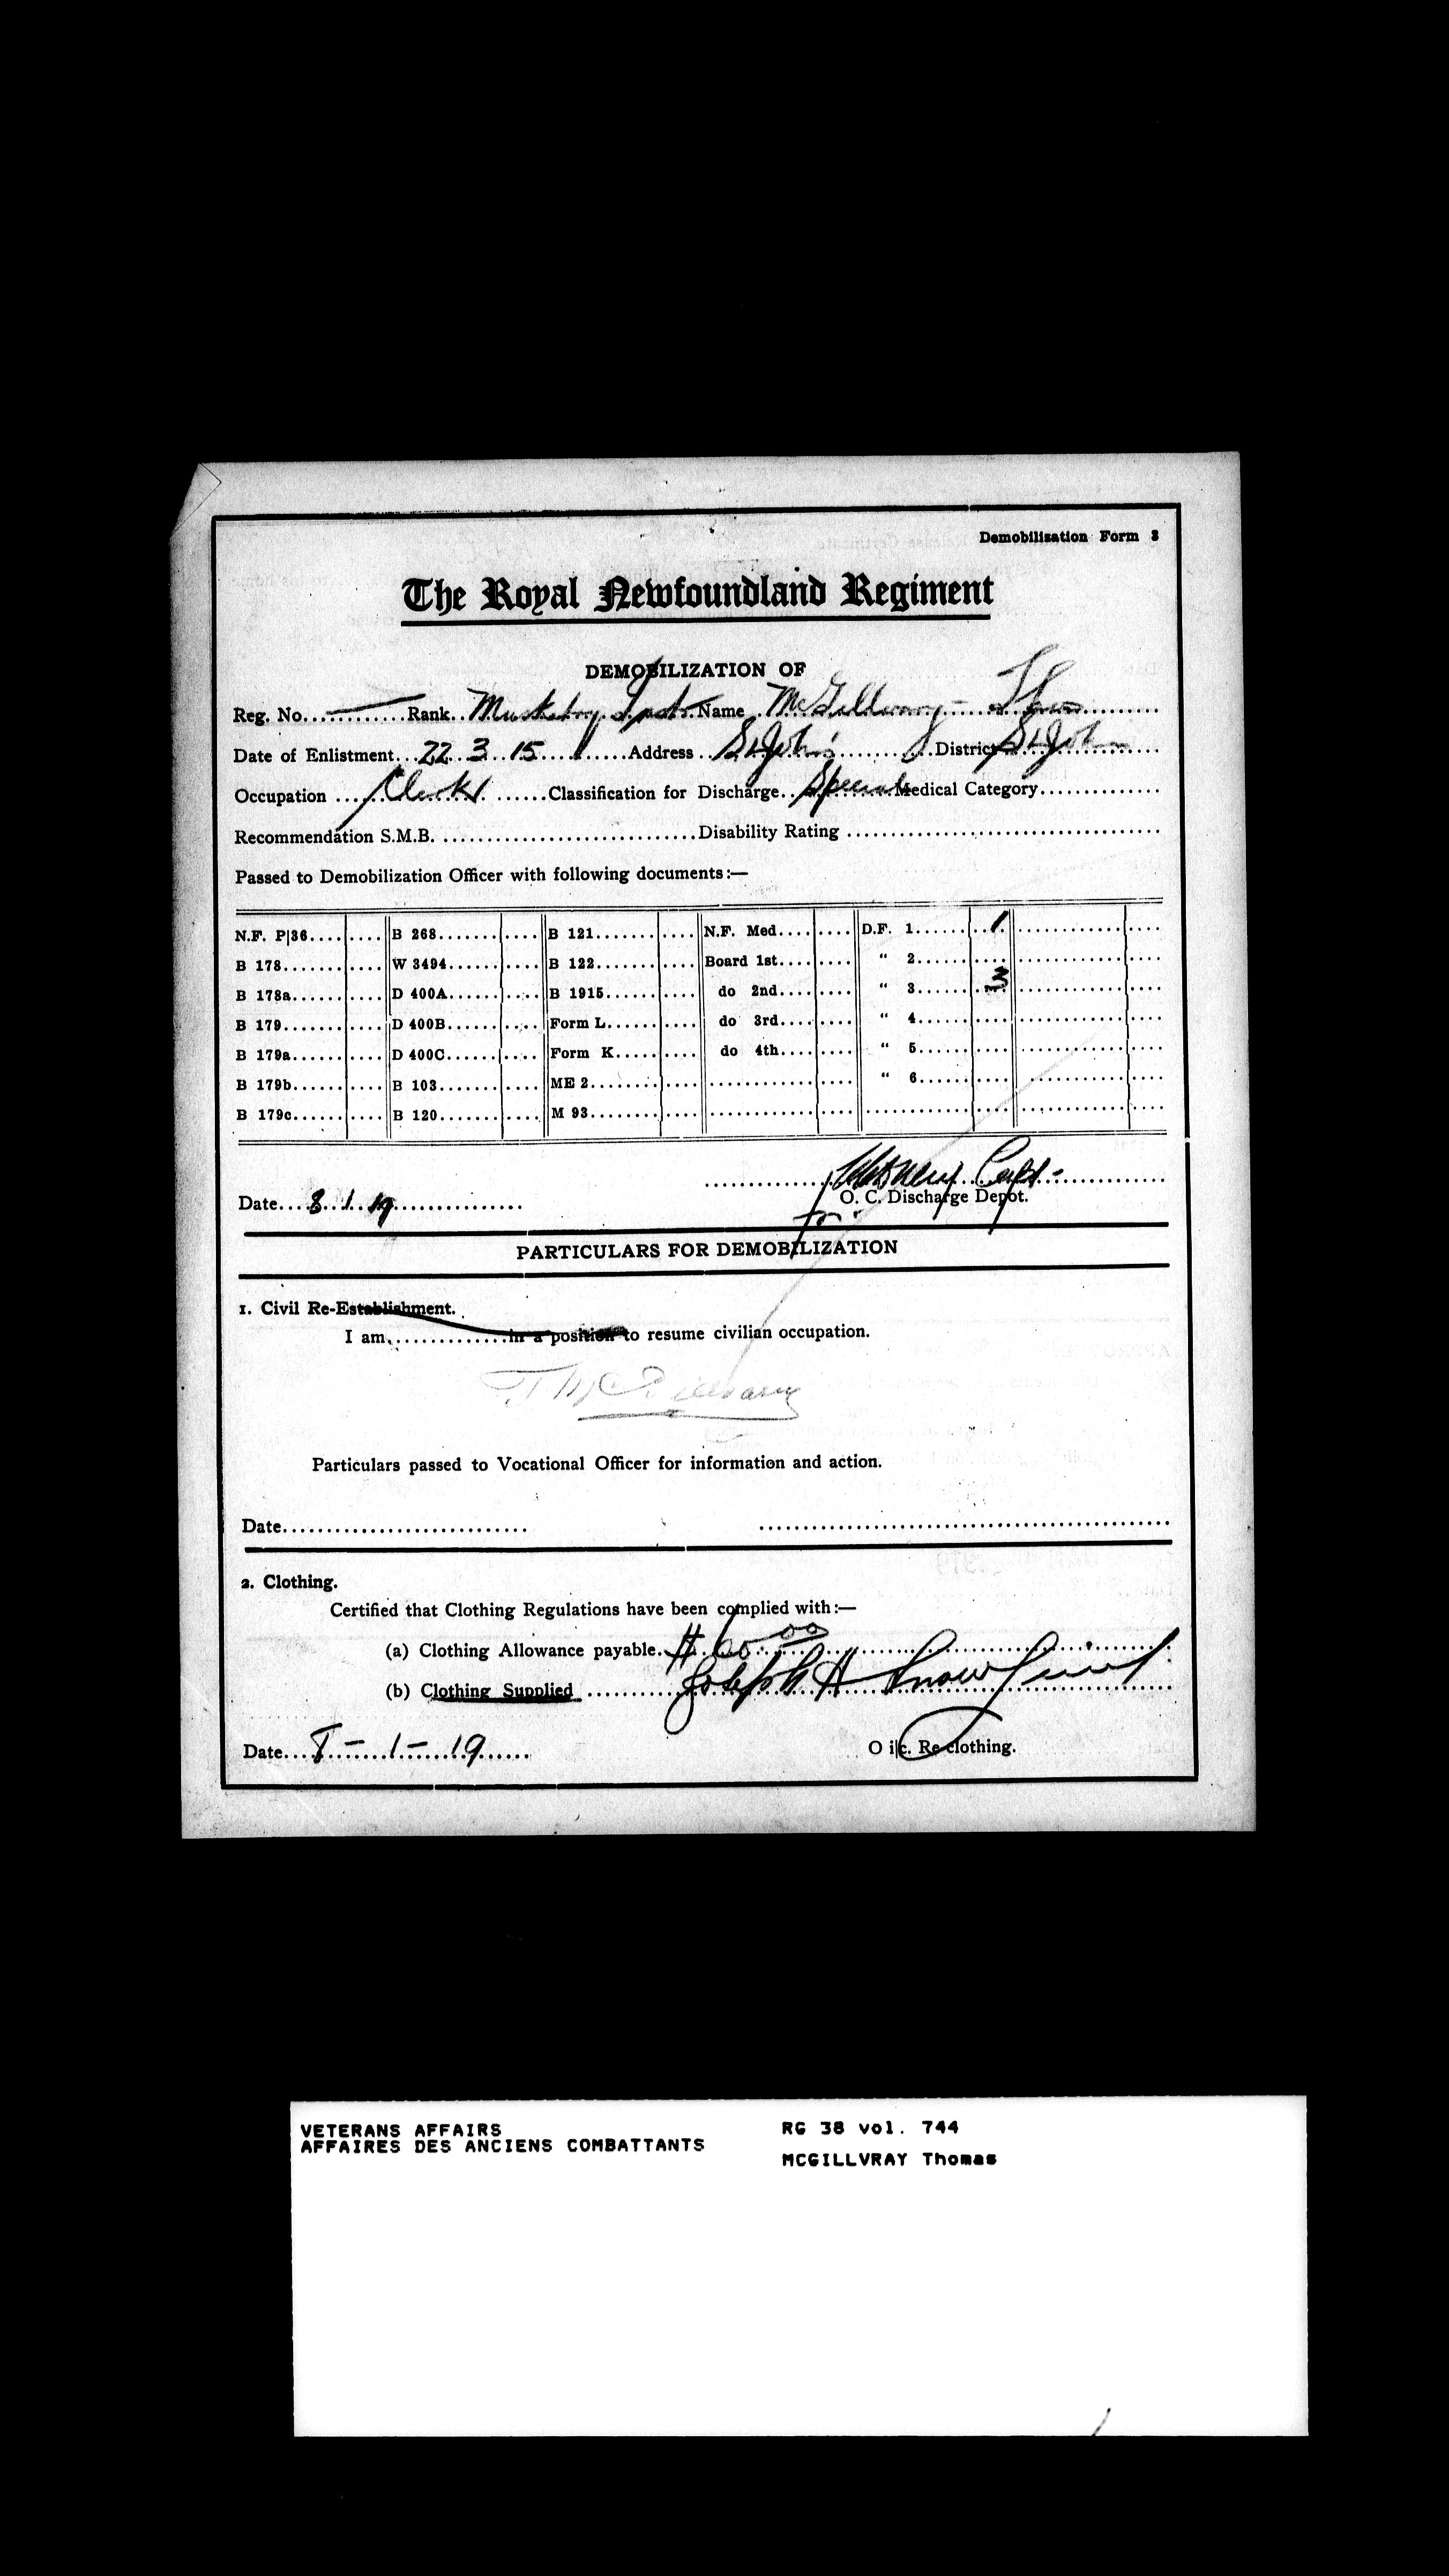 Demobilisation Form 3
The Royal Newfoundland Regiment
DEMOBILIZATION OF
Reg. No............ Rank.. Musketry Instr. Name McGillivray - Thos
Date of Enlistment... 22 3 15 ..........Address .. St John's ..........District St John
Occupation .... Clerk ......Classification for Discharge.. Special Medical Category..............
Recommendation S.M.B. ............................Disability Rating ....................................
Passed to Demobilization Officer with following documents:—
N.F. P|36.... B 268....... B 121....... N.F. Med.... D.F. 1...... 1
B 178....... W 3494...... B 122....... Board 1st.... " 2......
B 178a...... D 400A...... B 1915...... do 2nd.... " 3...... 3
B 179....... D 400B...... Form L...... do 3rd.... " 4......
B 179a...... D 400C...... Form K...... do 4th.... " 5......
B 179b...... B 103....... ME 2........ " 6......
B 179c...... B 120....... M 93........
Capt-
Date.... 8 1 19 ............... O. C. Discharge Depot.
for
PARTICULARS FOR DEMOBILIZATION
1. Civil Re-Establishment.
I am..............in a position to resume civilian occupation.
T McGillvary
Particulars passed to Vocational Officer for information and action.
Date............................
2. Clothing.
Certified that Clothing Regulations have been complied with:—
(a) Clothing Allowance payable. $ 60.00
(b) Clothing Supplied .......... Joseph H Snow Lieut
Date... 8 - 1 - 19 ...... O i|c. Re-clothing.
VETERANS AFFAIRS RG 38 vol. 744
AFFAIRES DES ANCIENS COMBATTANTS MCGILLVRAY Thomas